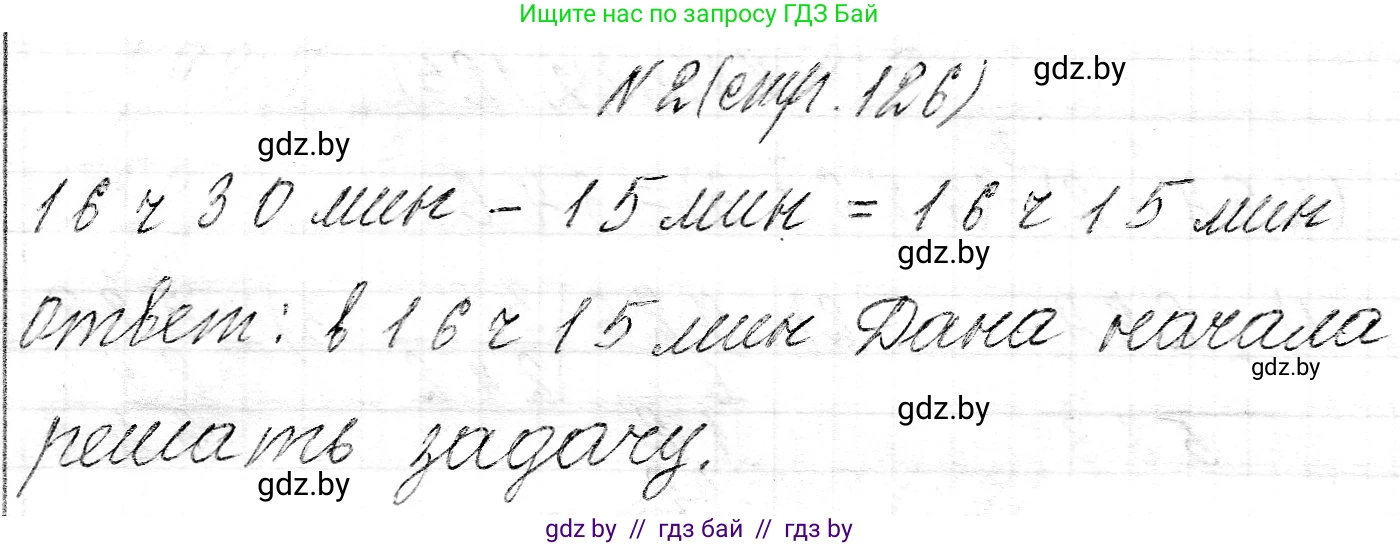 Ищите нас по запросу ГДЗ Бай
№2(стр. 126)
gdz.by
gdz.by
16 ч 30 мин - 15 мин = 16 ч 15 мин
gdz.by
ответ: в 16 ч 15 мин Дана начала
gdz.by
gdz.by
решать задачу.
gdz.by
gdz by // гдз бай // гдз by